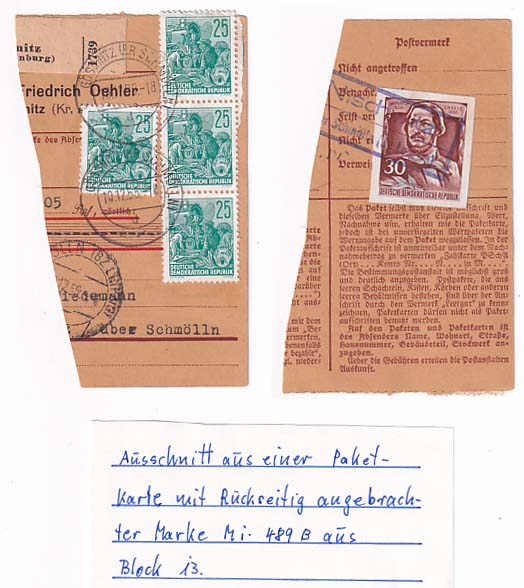 nitz
enburg)
1739
Friedrich Oehler
nitz (Kr.
des Absen
25
DEUTSCHE
DEMOKRATISCHE REPUBLIK
25
25
DEUTSCHE
DEMOKRATISCHE REPUBLIK
25
DEUTSCHE
DEMOKRATISCHE REPUBLIK
10.12.55
05
iedemann
über Schmölln
Postvermerk
Nicht angetroffen
Benachr.
Frist
verw
Verwei
30
DEUTSCHE DEMOKRATISCHE REPUBLIK
Das Paket selbst muß
und
dieselben Vermerke über Eilzustellung, Wert,
Nachnahme usw. erhalten, wie die Paketkarte,
jedoch ist bei Nachnahmepaketen die
Wertangabe auf dem Paket wegzulassen. In der
Paketaufschrift ist unmittelbar unter dem Nach
nahmebetrag zu vermerken „Zahlkarte PSchA
(Ort ... Konto Nr. ... N. N. in ... M)".
Die Bestimmungspostanstalt ist möglichst groß
und deutlich anzugeben. Postpakete, die aus
leeren Schachteln, Kisten, Körben oder anderen
leeren Behältnissen bestehen, sind über der Auf
schrift durch den Vermerk „Leergut" zu kenn
zeichnen. Paketkarten dürfen nicht als Paket
aufschriften benutzt werden.
Auf den Paketen und Paketkarten ist
des Absenders Name, Wohnort, Straße,
Hausnummer, Gebäudeteil, Stockwerk an-
zugeben.
Ueber die Gebühren erteilen die Postanstalten
Auskunft.
mit dem
um "Be-
werks
benenfalls
be bezahlt"
zu), nieder-
Ausschnitt aus einer Paket-
karte mit Rückseitig angebrach-
ter Marke Mi. 489 B aus
Block 13.